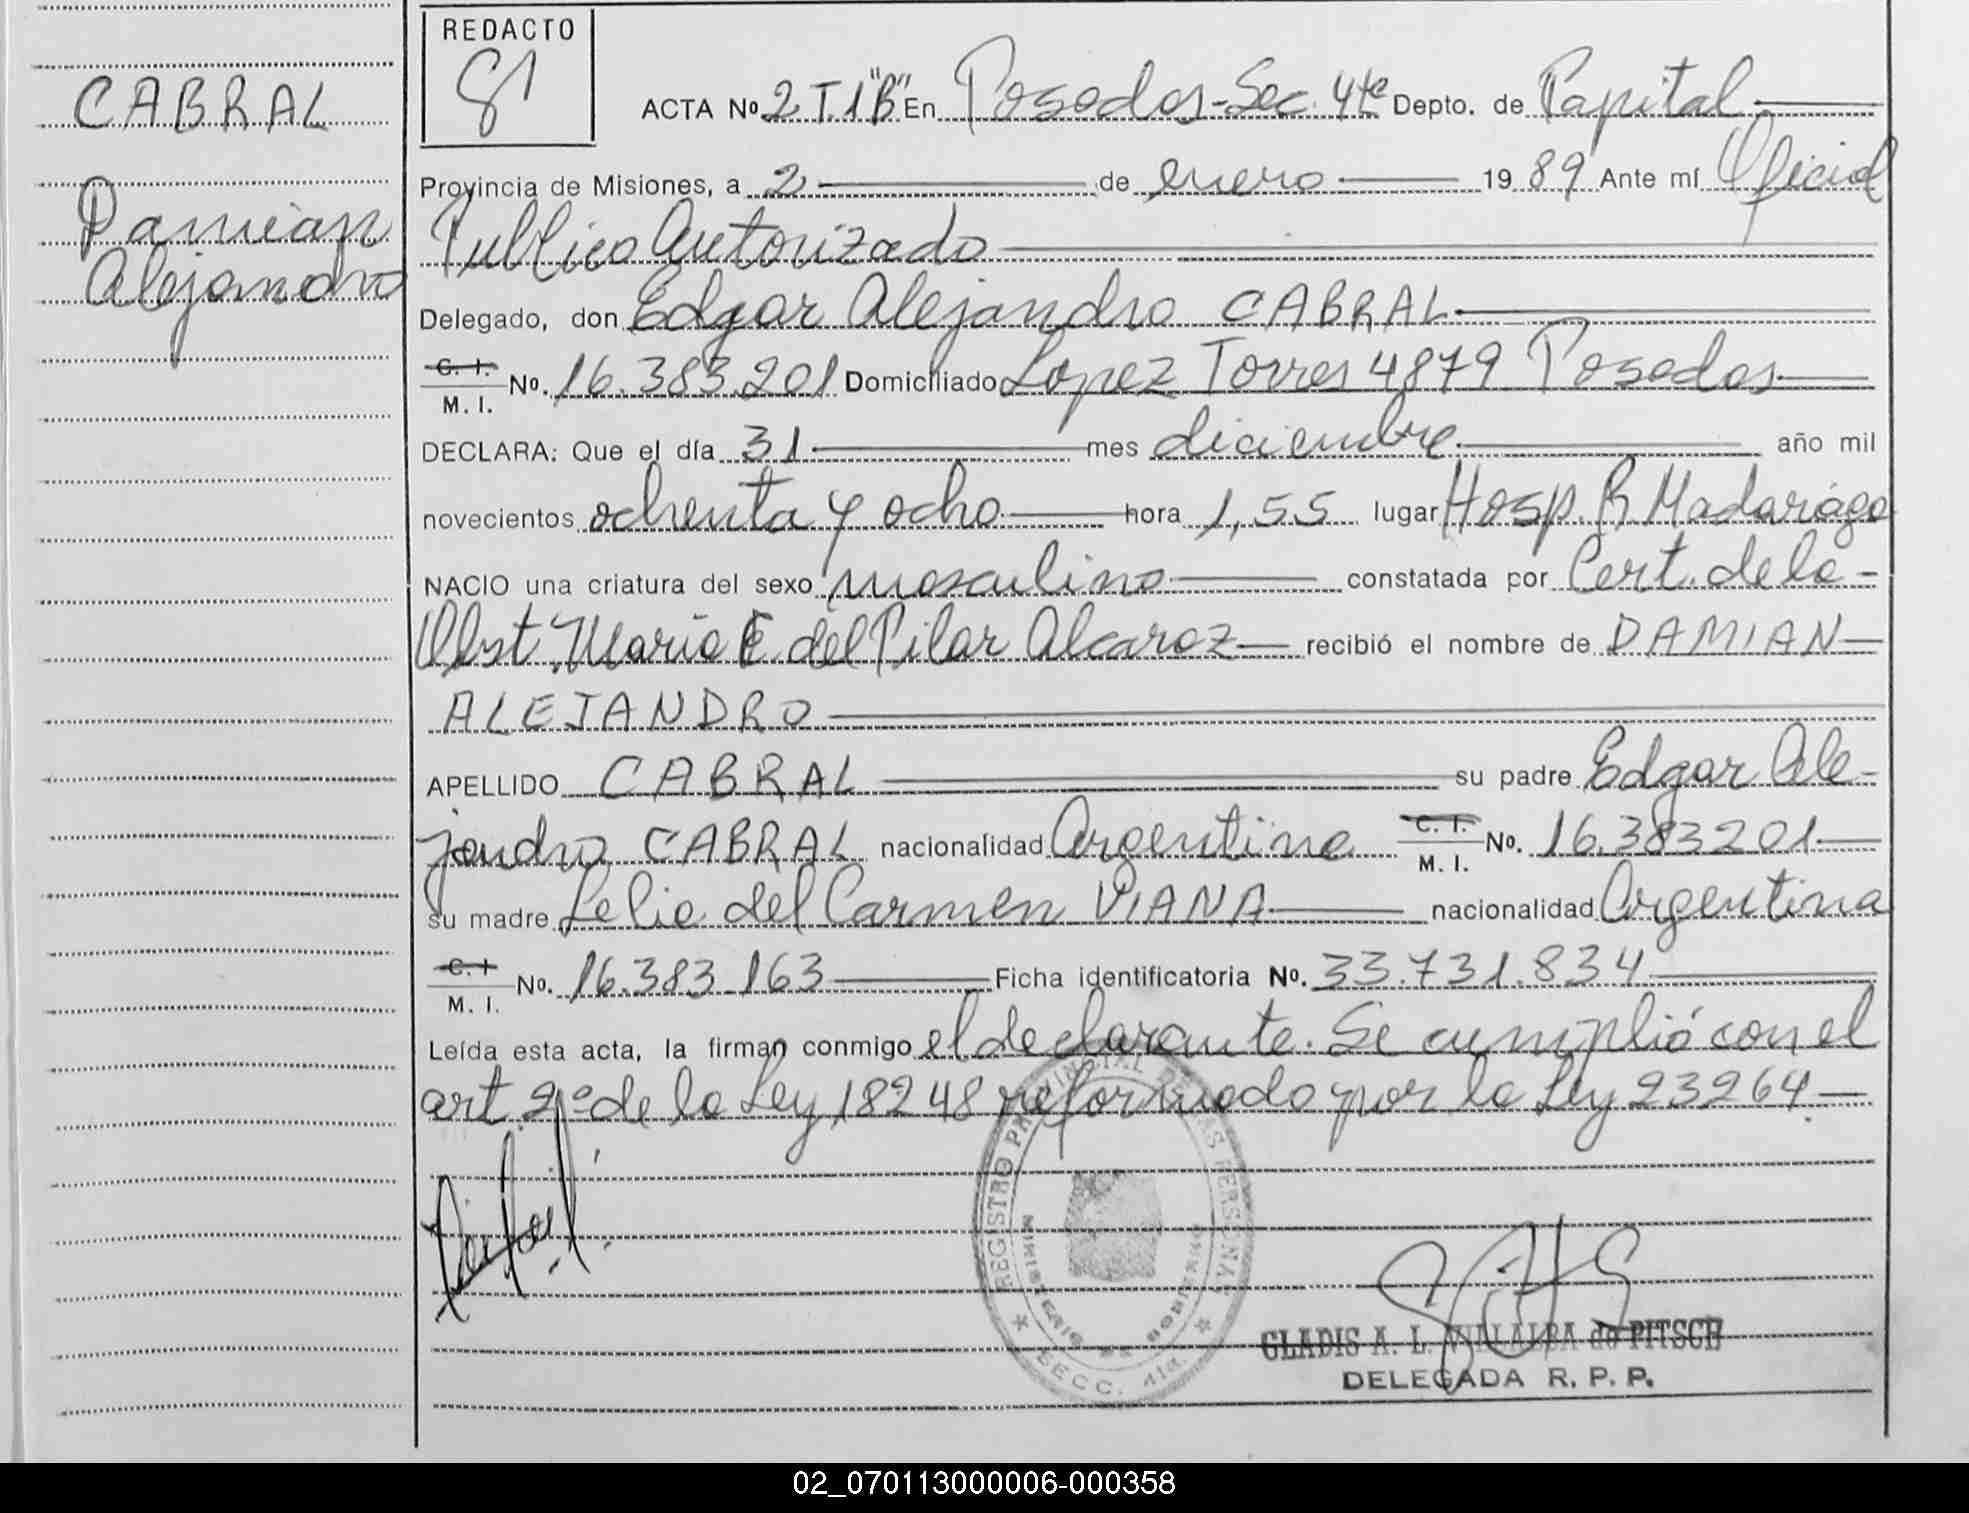 REDACTO
81
CABRAL
Damian
Alejandro
ACTA No. 2 T.1 "B" En Posadas-Sec. 4ta Depto. de Capital
Provincia de Misiones, a 2 de enero 1989 Ante mí Oficial
Publico Autorizado
Delegado, don Edgar Alejandro CABRAL
C. I. / M. I. No. 16.383.201 Domiciliado Lopez Torres 4879 Posadas
DECLARA: Que el día 31 mes diciembre año mil
novecientos ochenta y ocho hora 1,55 lugar Hosp. R. Madariaga
NACIO una criatura del sexo masculino constatada por Cert. de la
Obst. Maria E. del Pilar Alcaraz recibió el nombre de DAMIAN
ALEJANDRO
APELLIDO CABRAL su padre Edgar Ale-
jandro CABRAL nacionalidad Argentina C. I. / M. I. No. 16.383201
su madre Lelia del Carmen VIANA nacionalidad Argentina
C. I. / M. I. No. 16.383.163 Ficha identificatoria No. 33.731.834
Leída esta acta, la firman conmigo el declarante. Se cumplió con el
art. 2º de la Ley 18248 reformado por la Ley 23264.
REGISTRO PROVINCIAL DE LAS PERSONAS
MINISTERIO DE GOBIERNO
SECC. 4ta.
GLADIS A. L. VILLALBA de PITSCH
DELEGADA R. P. P.
02_070113000006-000358